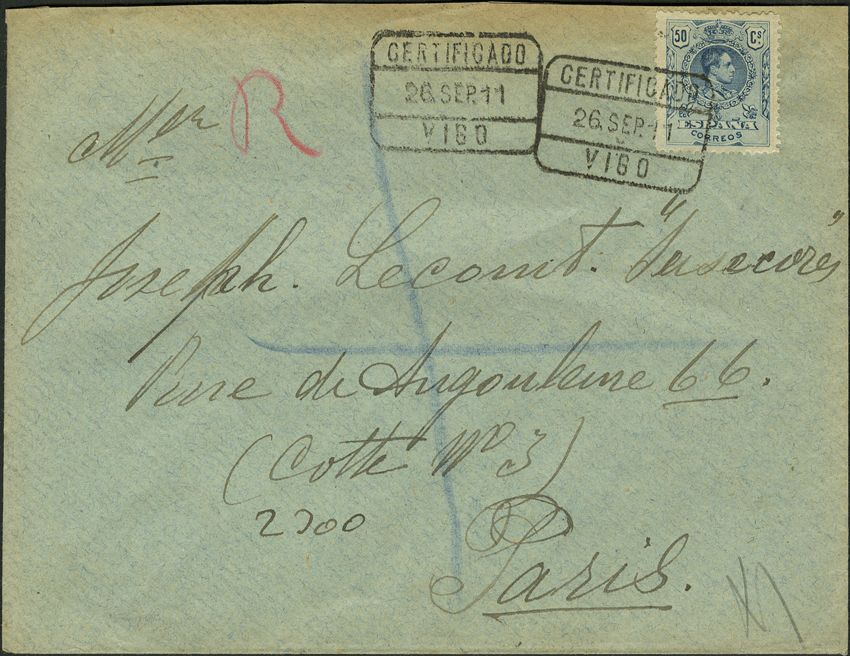 CERTIFICADO
26.SEP.11
VIGO
CERTIFICADO
26.SEP.11
VIGO
50 Cs
ESPAÑA
CORREOS
R
Mr
Joseph. Lecomt.
Rue de Angouleme 66.
(Cotte Nº 3)
2700
Paris.